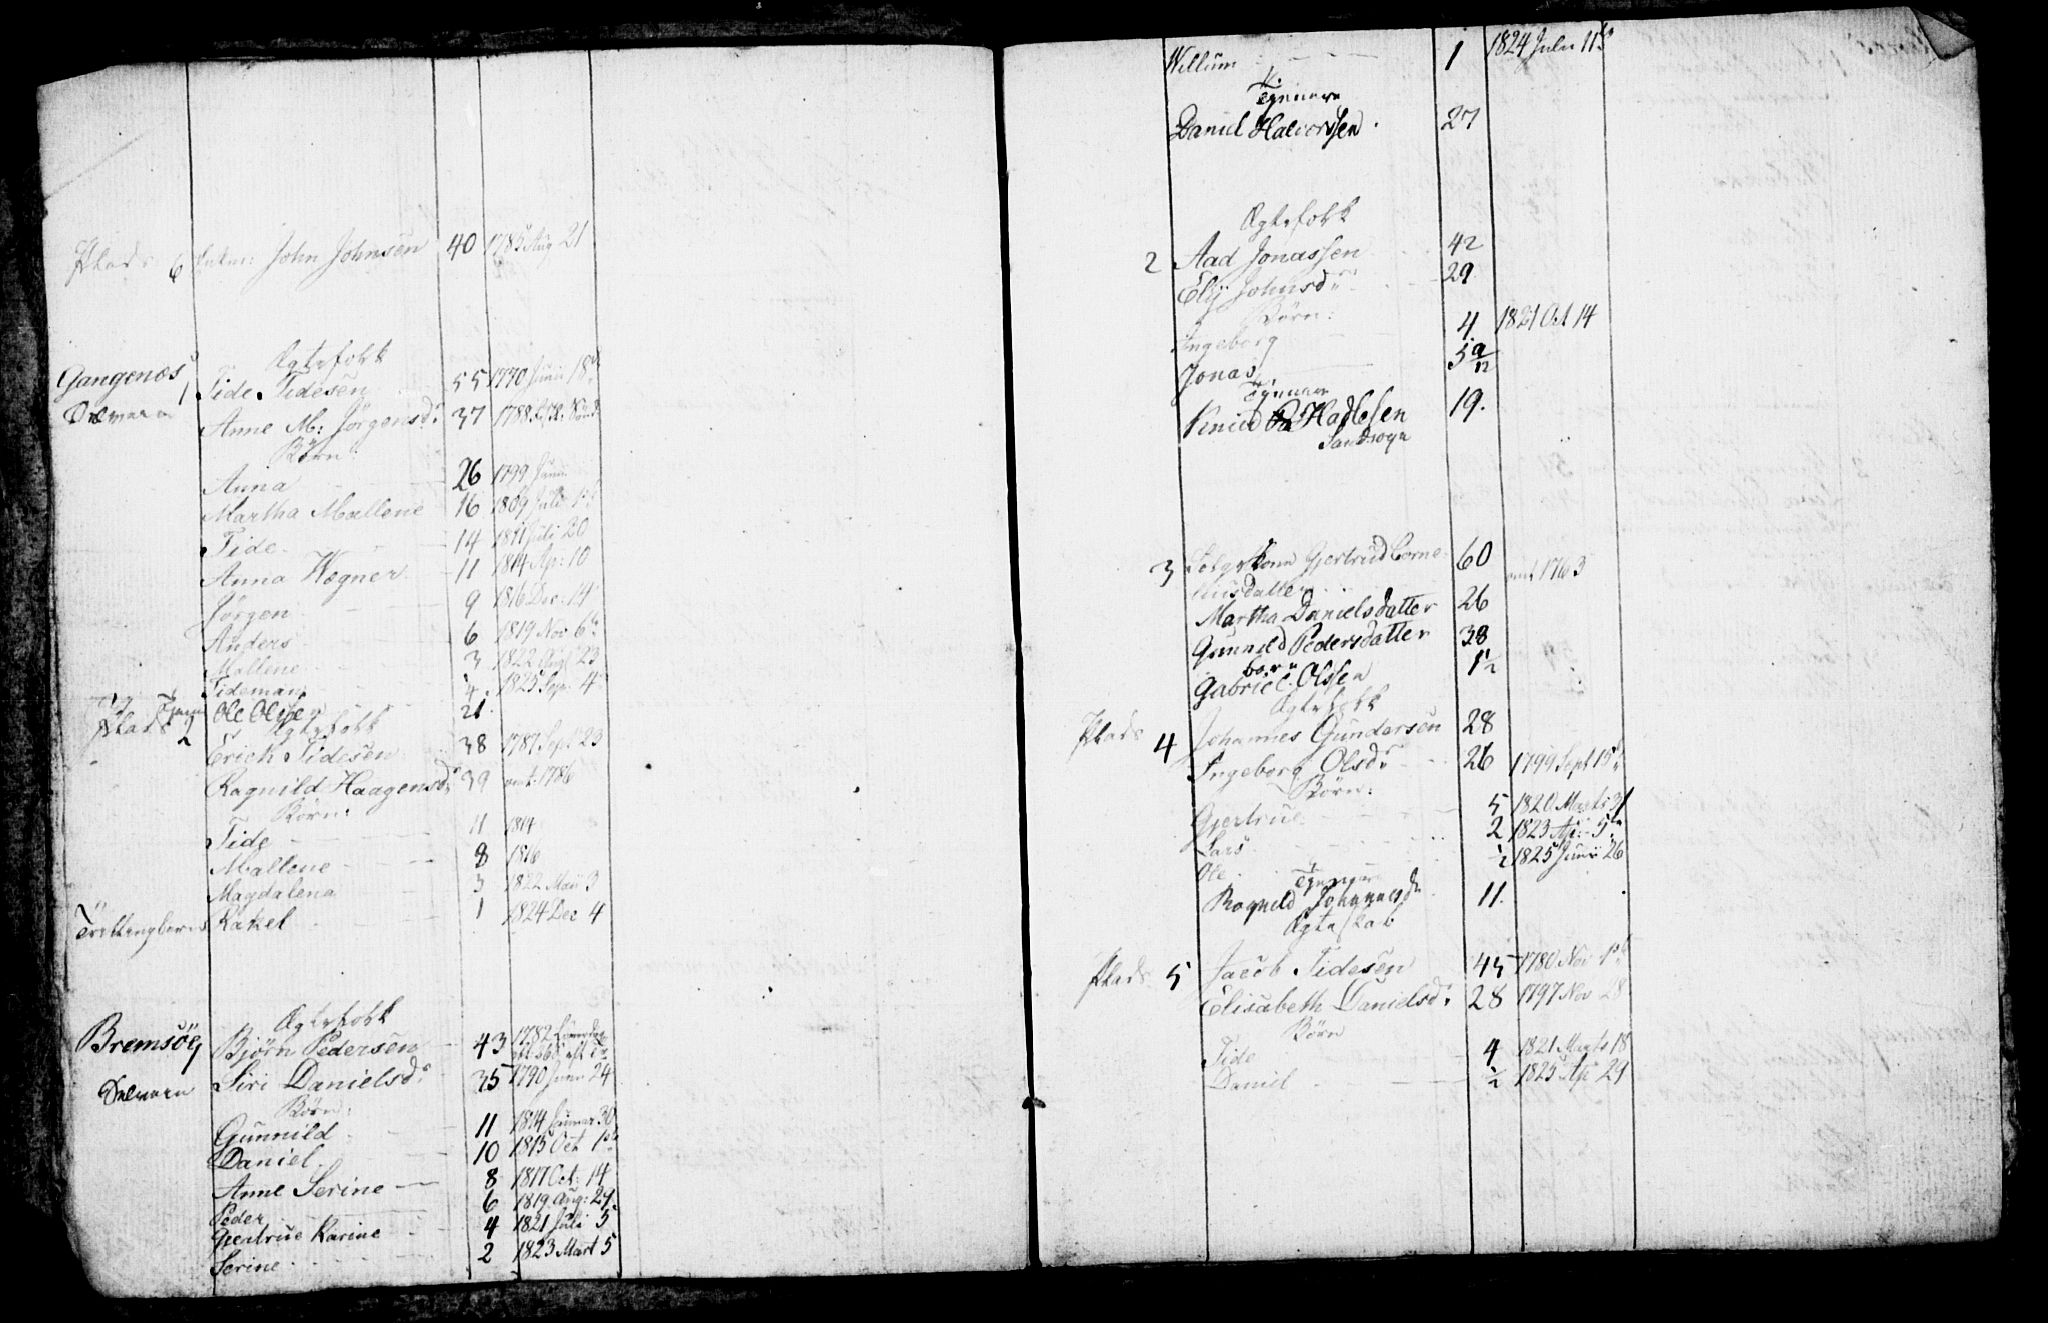 Plads 6 John Johnsen 40 1785 Aug 21
Ægtefolk
Gangenæs 1 Tide Tidesen 55 1770 Junii 18
Anne M: Jørgensdr 37 1788
Børn:
Anna 26 1799 Junii
Martha Mallene 16 1809 Julii 1st
Tide 14 1811 Juli 20
Anna Wegner 11 1814 Ap: 10
Jørgen 9 1816 Dec: 14
Anders 6 1819 Nov 6te
Mallene 3 1822 Aug 23
Tideman ¼ 1825 Sep: 4
Ole Olsen 21.
Plads 2 Ægtefolk
Erich Tidesen 38 1787 Sept 23
Ragnild Haagensdr 39 omt. 1786
Børn:
Tide 11 1814
Mallene 8 1816
Magdalena 3 1822 Maii 3
Rakel 1 1824 Dec 4
Ægtefolk
Bremsøe Bjørn Pedersen 43 1782
Siri Danielsdr 35 1790 Junii 24
Børn:
Gunnild 11 1814 Januar 30
Daniel 10 1815 Oct 1ste
Anne Serine 8 1817 Oct: 14
Peder 6 1819 Aug: 29
Gjertrue Karine 4 1821 Juli 5
Serine 2 1823 Mart 5
Willum 1 1824 Julii 11te
Tjenere
Daniel Halvorssen 27
Ægtefolk
2 Aad Jonassen 42
Elij Johnsdr 29
Børn:
Ingeborg 4 1821 Oct 14
Jonas 3 9/12
Tjenere
Knud Hadlesen 19.
Sandsogn
3 Gjertrud Corne 60 omt 1763
liusdatter
Martha Danielsdatter 26
Gunnild Pedersdatter 38
barn
Gabriel Olssen 1½
Ægtefolk
Plads 4 Johannes Gundersen 28
Ingeborg Olsdr 26 1799 Sept 15
Børn:
Gjertrue 5 1820 Marts 31
Lars 2 1823 Ap: 5te
Ole ½ 1825 Junii 26
Tjener
Ragnild Johannesdr 11.
Ægteskab
Plads 5 Jacob Tidesen 45 1780 Nov 1ste
Elisabeth Danielsdr 28 1797 Nov 28
Børn
Tide 4 1821 Marts 18
Daniel ½ 1825 Ap 29